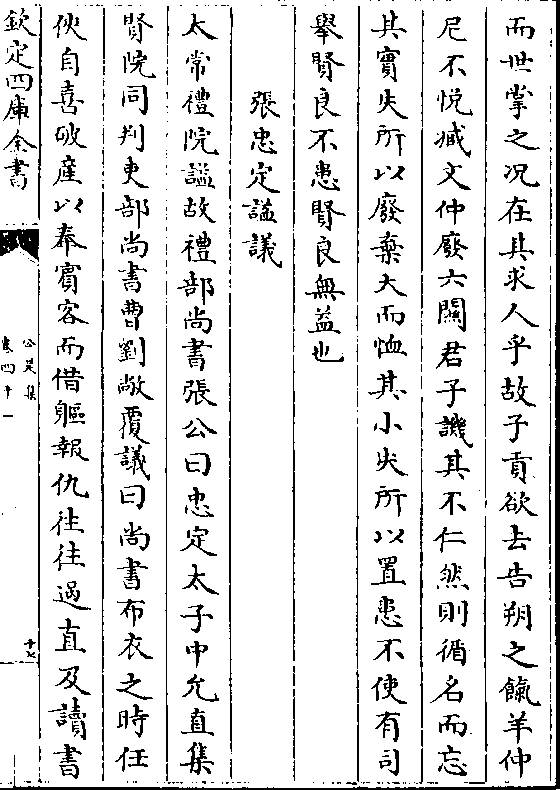 而世掌之况在其求人乎故子貢欲去告朔之餼羊仲
尼不悅臧文仲廢六關君子譏其不仁然則循名而忘
其實失所以廢棄大而恤其小失所以置患不使有司
舉賢良不患賢良無益也
張忠定謚議
太常禮院謚故禮部尚書張公曰忠定太子中允直集
賢院同判吏部尚書曹劉敞覆議曰尚書布衣之時任
俠自喜破產以奉賓客而借軀報仇往往過直及讀書
欽定四庫全書
公是集
卷四十一